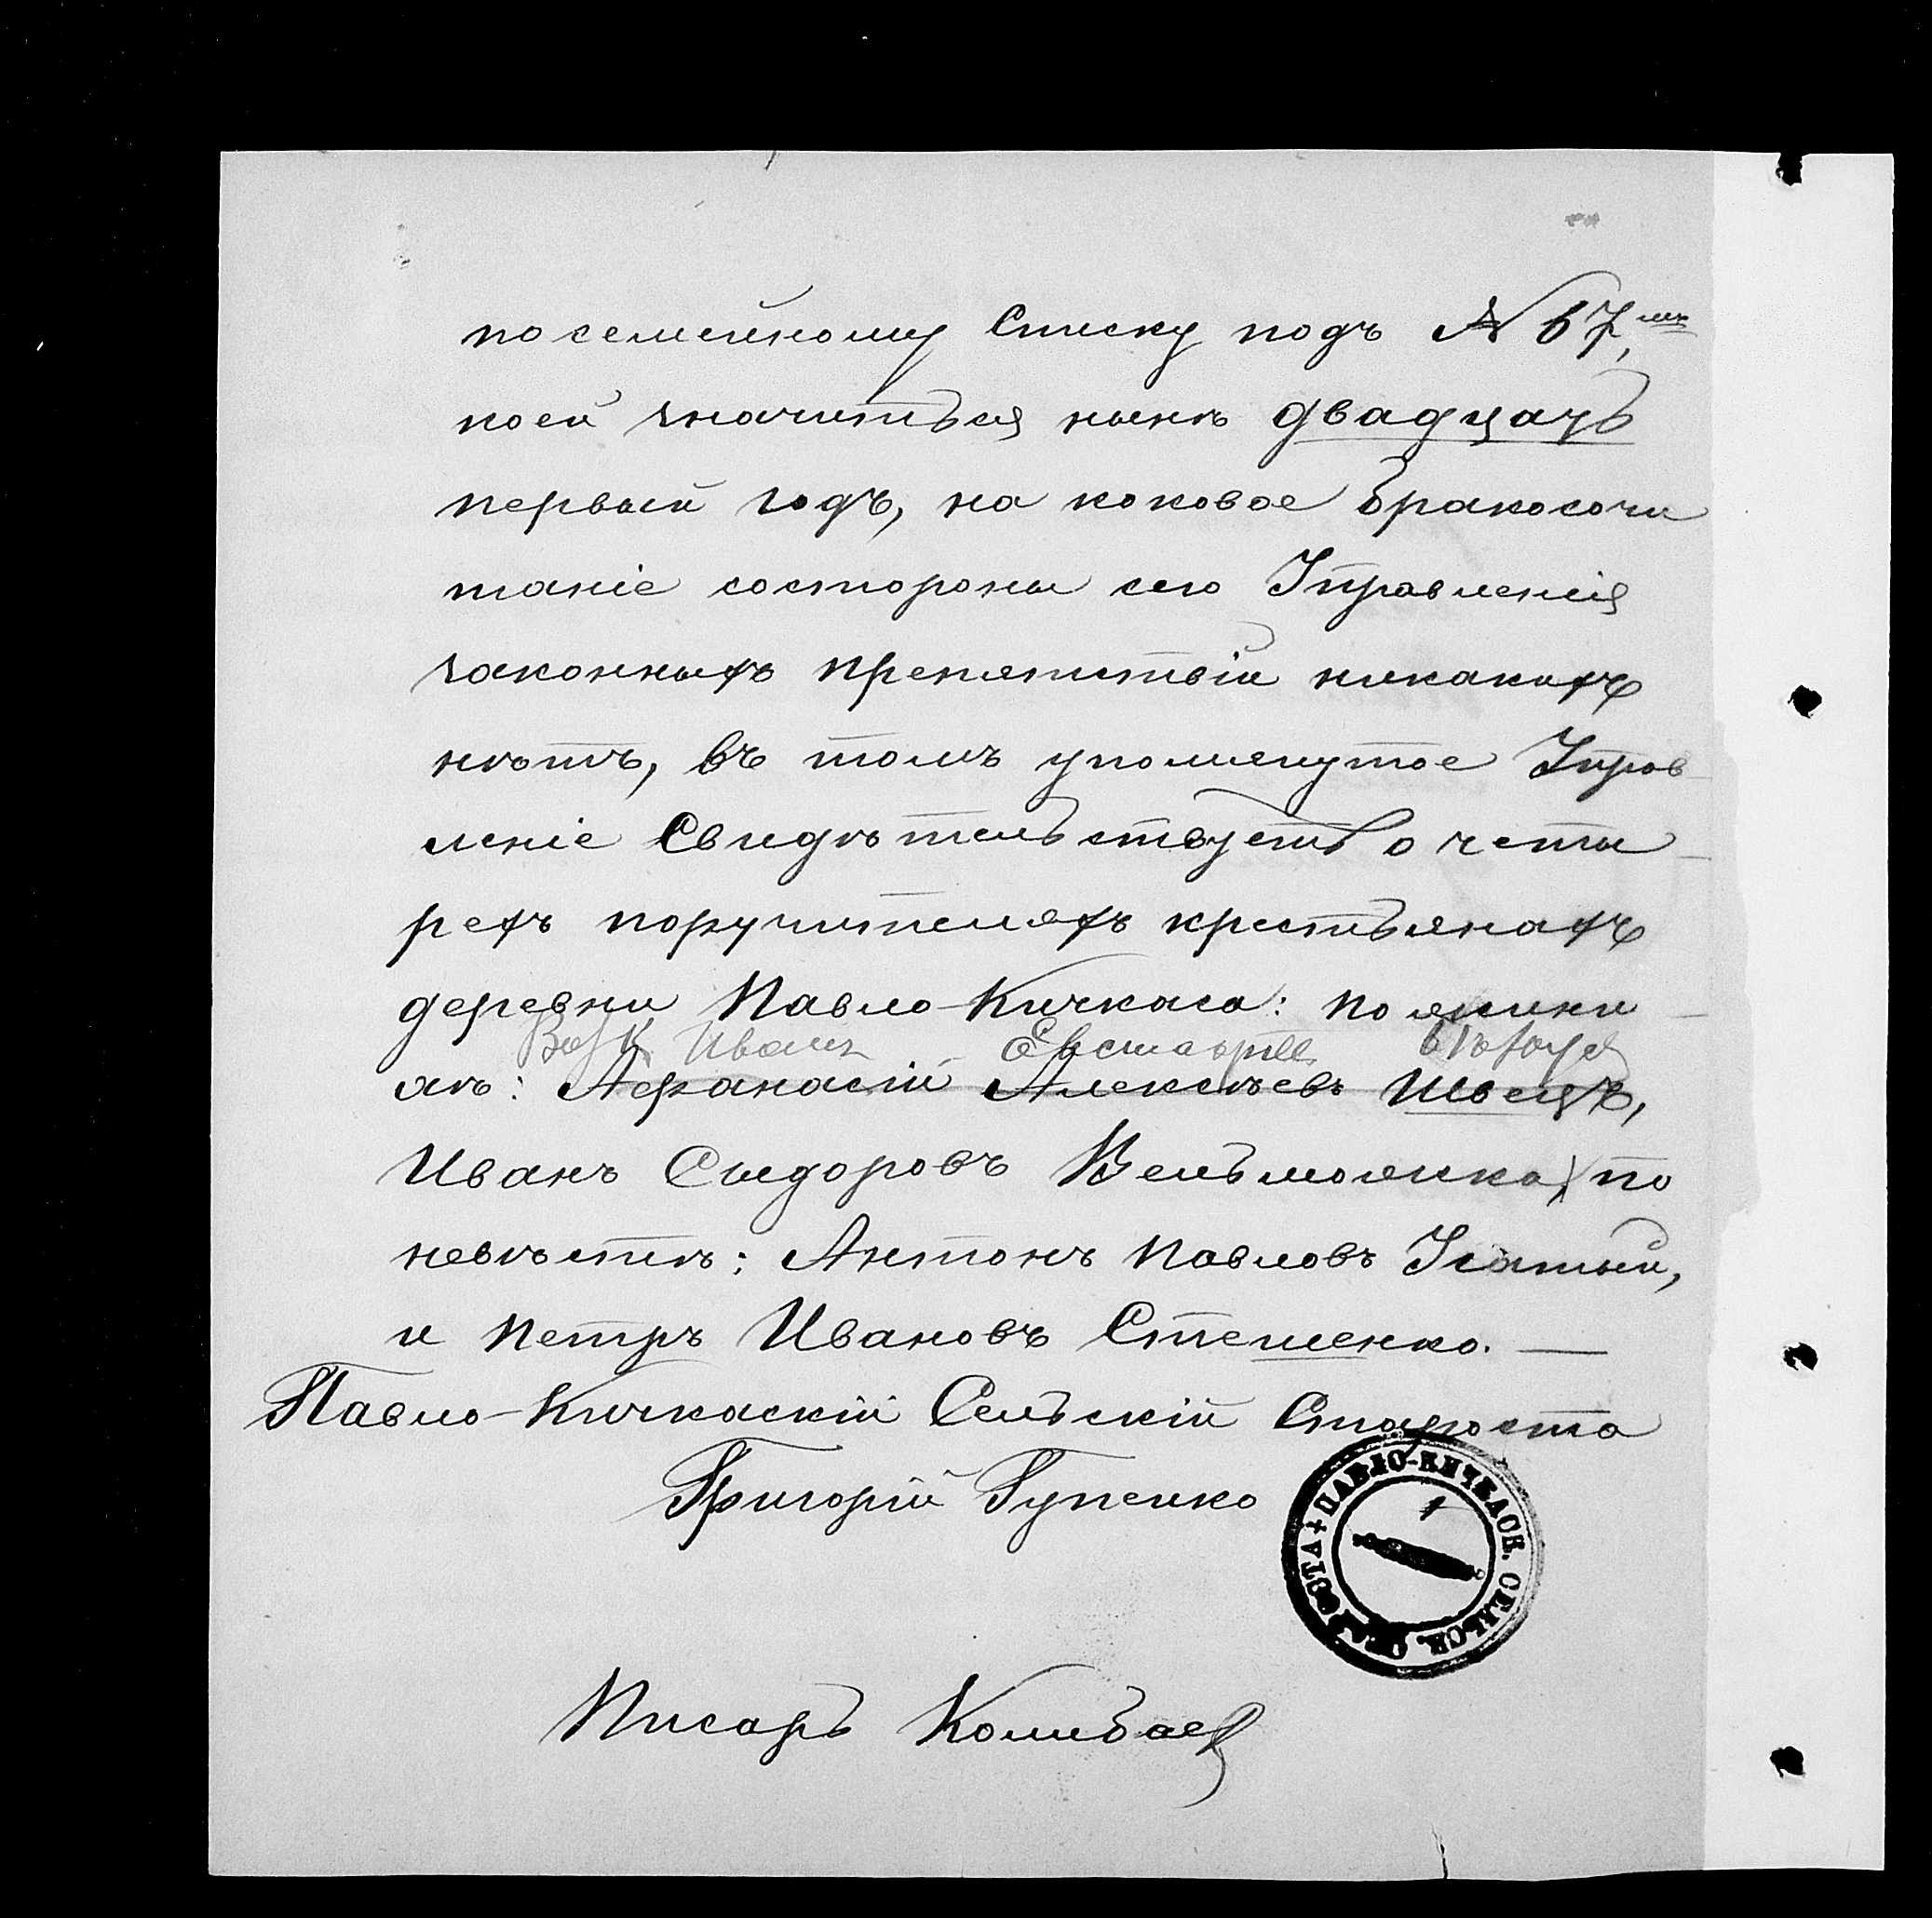 по семейному Списку подъ № 67,мъ
коей значиться ныне двадцать
первый годъ, на каковое бракосоче
таніе состороны сего Управленія
законныхъ препятствій никакихъ
нѣтъ, въ томъ упомянутое Управ
леніе Свидѣтельствуетъ о четы
рехъ поручителяхъ крестьянахъ
деревни Павло-Кичкаса: по жених
Иванъ Евстафіев
ѣ: Афанасій Алексѣевъ Швецъ,
Иванъ Сыдоровъ Вельможка, по
невѣстѣ: Антонъ Павловъ Усатый,
и Петръ Ивановъ Стешенко.
Павло-Кичкаскій Сельскій Староста
Григорій Гупенко
ПАВЛО-КИЧКАСК. СЕЛЬСК. СТАРОСТА
Писарь